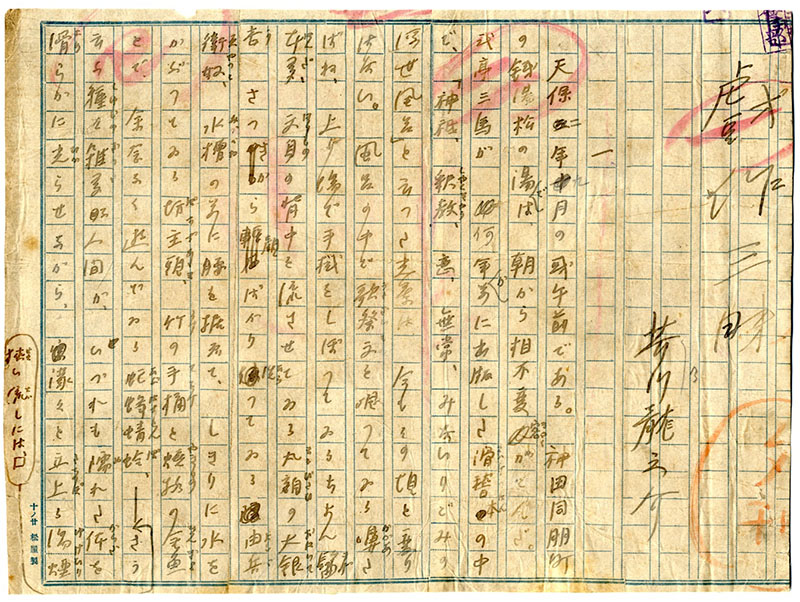 戯作三昧
芥川龍之介
一
天保二年九月の或午前である。神田同朋町
の銭湯松の湯では、朝から相不変客が多かつた。
式亭三馬が何年か前に出版した滑稽本の中
で、「神祇、釈教、恋、無常、みないりごみの
浮世風呂」と云つた光景は、今もその頃と変り
はない。風呂の中で歌祭文を唄つてゐる嚊た
ばね、上り場で手拭をしぼつてゐるちよん髷
本多、文身の背中を流させてゐる丸額の大銀
杏、さつきから顔ばかり洗つてゐる由兵
衛奴、水槽の前に腰を据ゑて、しきりに水を
かぶつてゐる坊主頭、竹の手桶と焼物の金魚
とで、余念なく遊んでゐる虻蜂蜻蛉、――さう
云ふ種々雑多な人間が、いづれも濡れた体を
滑らかに光らせながら、濛々と立上る湯煙
狭い流しには、
十ノ廿 松屋製